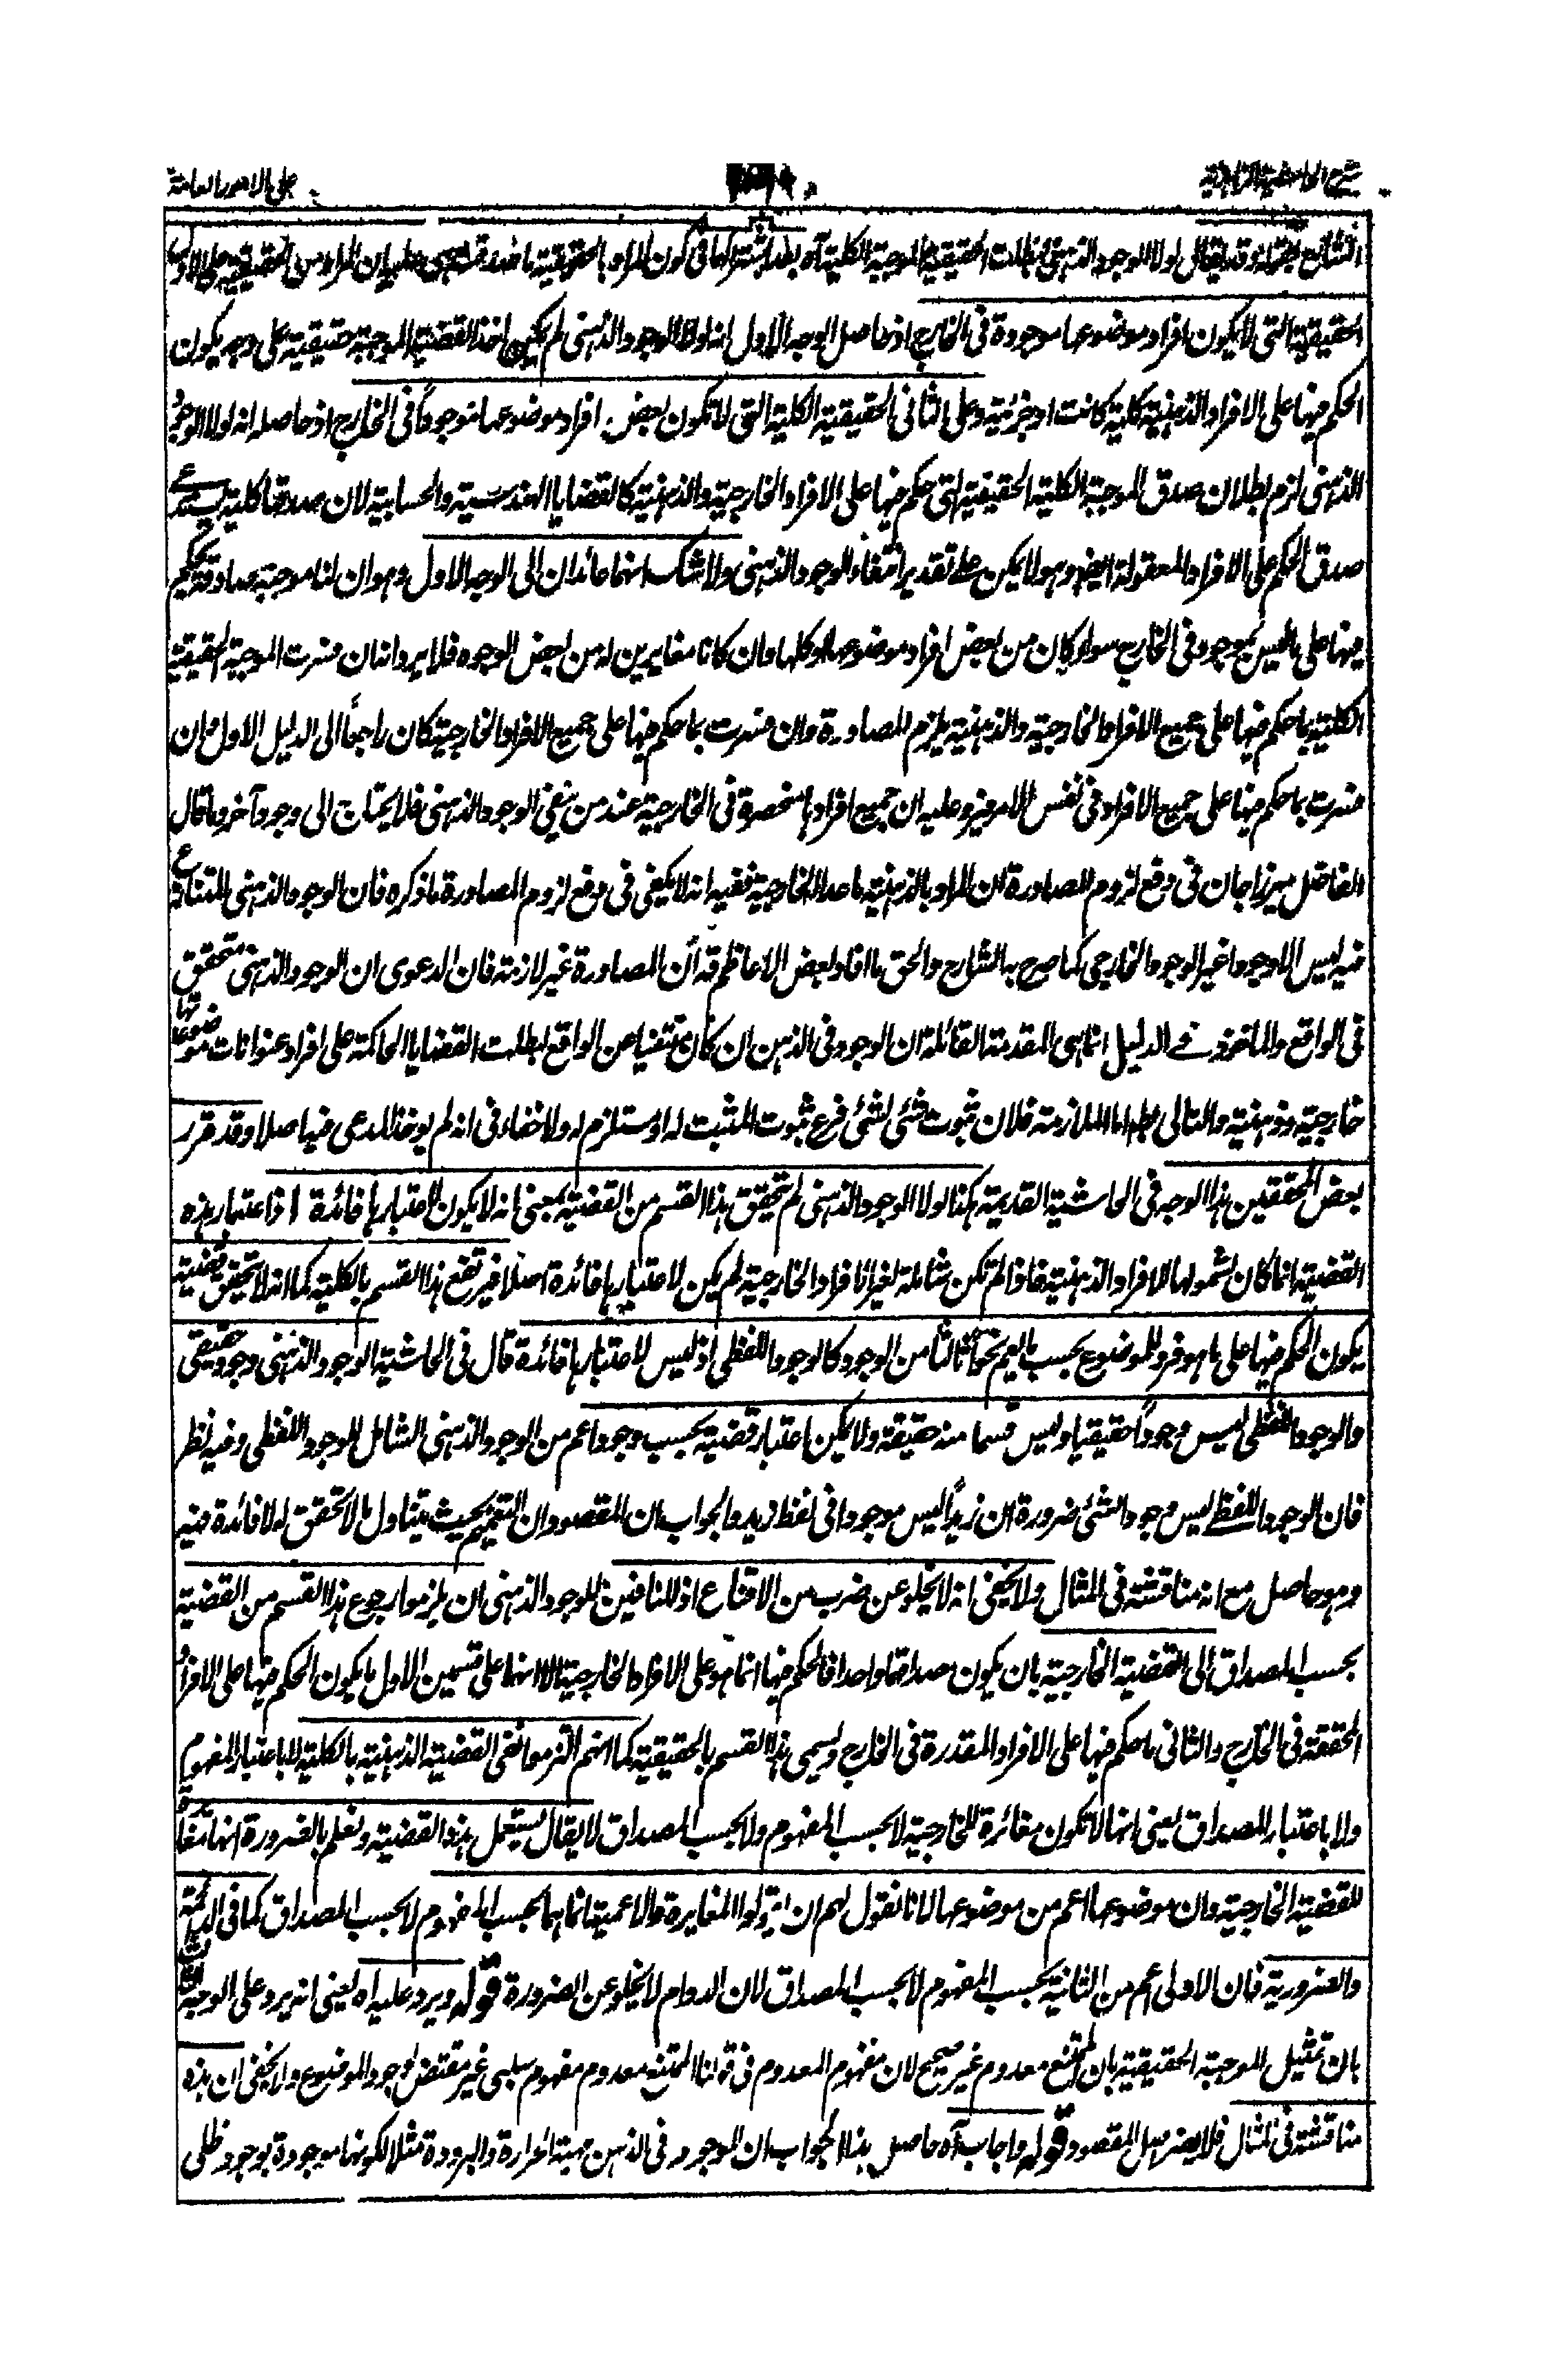 شرح الحاشية الزاهدية
على الامور العامة
الشارح وقد يقال لولا الوجود الذهني لبطلت الحقيقية الموجبة الكلية آه بعد اشتراكهما في كون المراد بالحقيقية ان المراد من الحقيقية على الاول
الحقيقية التي لا يكون افراد موضوعها موجودة في الخارج اذ حاصل الوجه الاول انه لولا الوجود الذهني لم يكن اخذ القضية الموجبة حقيقية على وجه يكون
الحكم فيها على الافراد الذهنية كلية كانت او جزئية وعلى الثاني الحقيقية الكلية التي لا تكون بعض افراد موضوعها موجودة في الخارج اذ حاصله انه لولا الوجود
الذهني لزم بطلان صدق الموجبة الكلية الحقيقية التي حكم فيها على الافراد الخارجية والذهنية كالقضايا الهندسية والحسابية لان صدقها كلية يستدعى
صدق الحكم على الافراد المعقولة ايضا وهو لا يمكن على تقدير انتفاء الوجود الذهني ولا شك انهما عائدان الى الوجه الاول وهو ان لنا موجبة صادقة حكم
فيها على ما ليس بموجود في الخارج سواء كان من بعض افراد موضوعها او كلها وان كانا مغايرين له من بعض الوجوه فلا يرد انه ان فسرت الموجبة الحقيقية
الكلية بما حكم فيها على جميع الافراد الخارجية والذهنية يلزم المصادرة وان فسرت بما حكم فيها على جميع الافراد الخارجية كان راجعاً الى الدليل الاول وان
فسرت بما حكم فيها على جميع الافراد في نفس الامر فيرد عليه ان جميع افرادها منحصرة في الخارجية عند من ينفي الوجود الذهني فلا يحتاج الى وجود آخر وما قال
الفاضل ميرزا جان في دفع لزوم المصادرة ان المراد بالذهنية ما عدا الخارجية ففيه انه لا يكفي في دفع لزوم المصادرة ما ذكره فان الوجود الذهني المتنازع
فيه ليس الا وجودا غير الوجود الخارجي كما صرح به الشارح والحق ما افاد بعض الاعاظم قه ان المصادرة غير لازمة فان الدعوى ان الوجود الذهني متحقق
في الواقع والماخوذ في الدليل انما هي المقدمة القائلة ان الوجود في الذهن ان كان منتفيا عن الواقع لبطلت القضايا الحاكمة على افراد عنوانات موضوعاتها
خارجية وذهنية والتالي بط اما الملازمة فلان ثبوت شئ لشئ فرع ثبوت المثبت له او مستلزم له ولا خفاء في انه لم يوخذ المدعى فيها اصلا وقد قرر
بعض المحققين هذا الوجه في الحاشية القديمة هكذا لولا الوجود الذهني لم يتحقق هذا القسم من القضية بمعنى انه لا يكون لاعتبارها فائدة اذ اعتبار هذه
القضية انما كان لشمولها الافراد الذهنية فاذا لم تكن شاملة لغير الافراد الخارجية لم يكن لاعتبارها فائدة اصلا فيرتفع هذا القسم بالكلية كما انه لا يتحقق قضية
يكون الحكم فيها على ما هو فرد الموضوع بحسب ما يعم نحواً ثالثاً من الوجود كالوجود اللفظي اذ ليس لاعتبارها فائدة قال في الحاشية الوجود الذهني وجود حقيقي
والوجود اللفظي ليس وجوداً حقيقيا وليس قسما منه حقيقة ولا يمكن اعتبار قضية بحسب وجود اعم من الوجود الذهني الشامل للوجود اللفظي وفيه نظر
فان الوجود اللفظي ليس وجود الشئ ضرورة ان زيداً ليس موجودا في لفظ زيد والجواب ان المقصود ان التعميم بحيث يتناول ما لا تحقق له لا فائدة فيه
وهو حاصل مع انه مناقشة في المثال ولا يخفى انه لا يخلو عن ضرب من الاقناع اذ للنافين للوجود الذهني ان يلزموا رجوع هذا القسم من القضية
بحسب المصداق الى القضية الخارجية بان يكون مصداقهما واحدا فالحكم فيها انما هو على الافراد الخارجية الا انها على قسمين الاول ما يكون الحكم فيها على الافراد
المحققة في الخارج والثاني ما حكم فيها على الافراد المقدرة في الخارج ويسمى هذا القسم بالحقيقية كما انهم التزموا نفى القضية الذهنية بالكلية لا باعتبار المفهوم
ولا باعتبار المصداق يعني انها لا تكون مغائرة للخارجية لا بحسب المفهوم ولا بحسب المصداق لا يقال يستعمل هذه القضية ونعلم بالضرورة انها مغائرة
للقضية الخارجية وان موضوعها اعم من موضوعها لانا نقول لهم ان يقولوا المغايرة والاعمية انما هما بحسب المفهوم لا بحسب المصداق كما في الدائمة
والضرورية فان الاولى اعم من الثانية بحسب المفهوم لا بحسب المصداق لان الدوام لا يخلو عن الضرورة قوله ويرد عليه اه يعني انه يرد على الوجه الثالث
بان تمثيل الموجبة الحقيقية بان الممتنع معدوم غير صحيح لان مفهوم المعدوم في قولنا الممتنع معدوم مفهوم سلبي غير مقتض لوجود الموضوع ولا يخفى ان هذه
مناقشة في المثال فلا يضر اصل المقصود قوله واجاب آه حاصل هذا الجواب ان الموجود في الذهن مهية الحرارة والبرودة مثلا لكونها موجودة بوجود ظلي